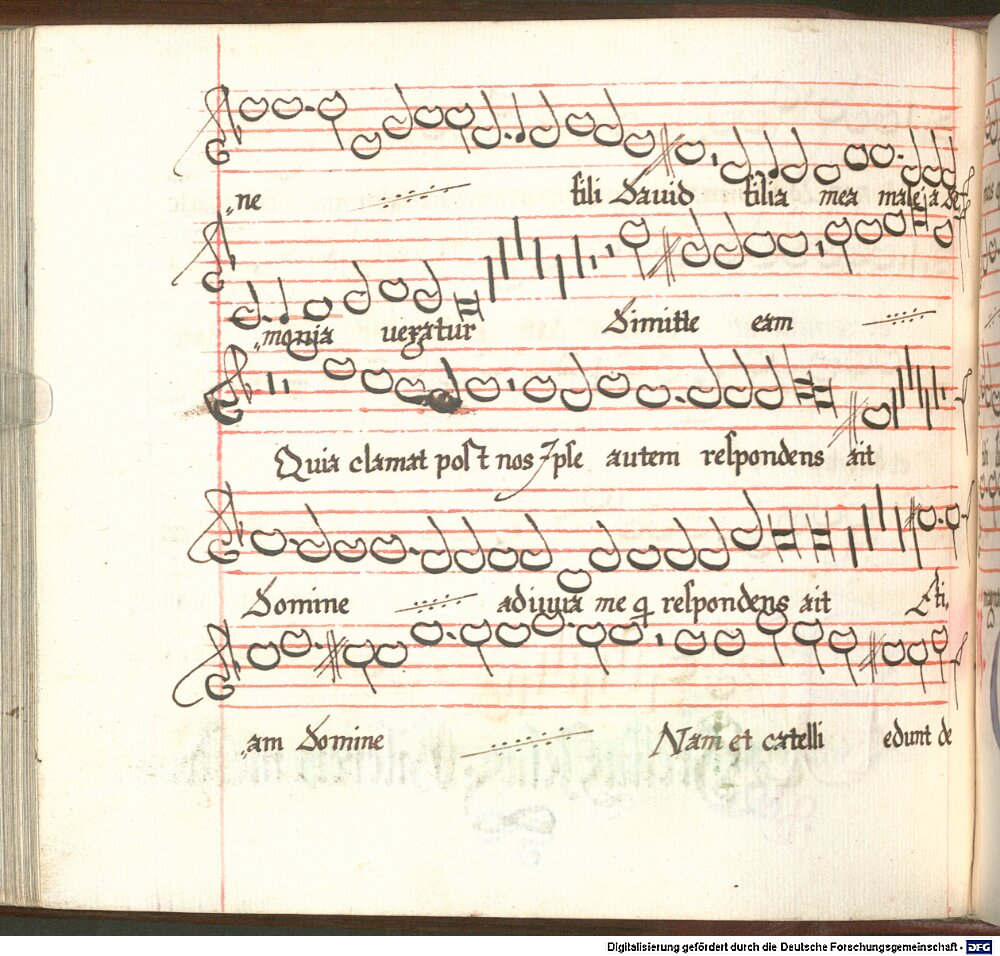 ne fili Dauid filia mea male a De
monia uexatur Dimitte eam
Quia clamat post nos Ipse autem respondens ait
Domine adiuua me q respondens ait Eti
am Domine Nam et catelli edunt de
Digitalisierung gefördert durch die Deutsche Forschungsgemeinschaft - DFG